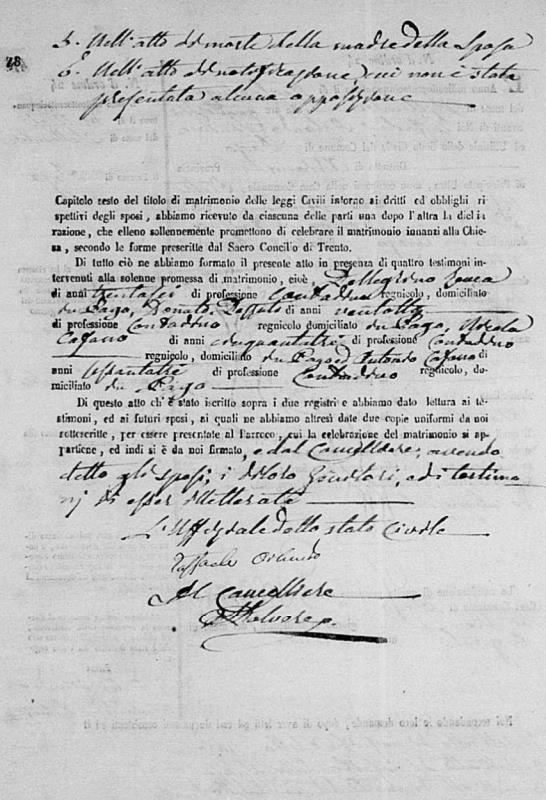 28
5. Nell'atto di morte della madre della Sposa
6. Nell'atto di notificazione, cui non è stata
presentata alcuna opposizione
Capitolo sesto del titolo di matrimonio delle leggi Civili intorno ai dritti ed obblighi ri
spettivi degli sposi, abbiamo ricevuto da ciascuna delle parti una dopo l'altra la dichia
razione, che elleno sollennemente promettono di celebrare il matrimonio innanzi alla Chie-
sa, secondo le forme prescritte dal Sacro Concilio di Trento.
Di tutto ciò ne abbiamo formato il presente atto in presenza di quattro testimoni
intervenuti alla solenne promessa di matrimonio, cioè Pellegrino
di anni trentasei di professione Contadino regnicolo, domiciliato
in Pago, Donato di anni ventotto
di professione Contadino regnicolo domiciliato in Pago, Nicola
Cafano di anni cinquantatre di professione Contadino
regnicolo, domiciliato in Pago ed Antonio Cafano di
anni sessantatre di professione Contadino regnicolo, do-
miciliato in Pago
Di questo atto ch' è stato iscritto sopra i due registri e abbiamo dato lettura ai te-
stimoni, ed ai futuri sposi, ai quali ne abbiamo altresì date due copie uniformi da noi
sottoscritte, per essere presentate al Parroco, cui la celebrazione del matrimonio si ap-
partiene, ed indi si è da noi firmato, e dal Cancelliere, avendo
detto gli sposi, i di loro Genitori, ed i testimo
nj di esser illetterati
L'Uffiziale dello stato Civile
Raffaele Orlando
Il Cancelliere